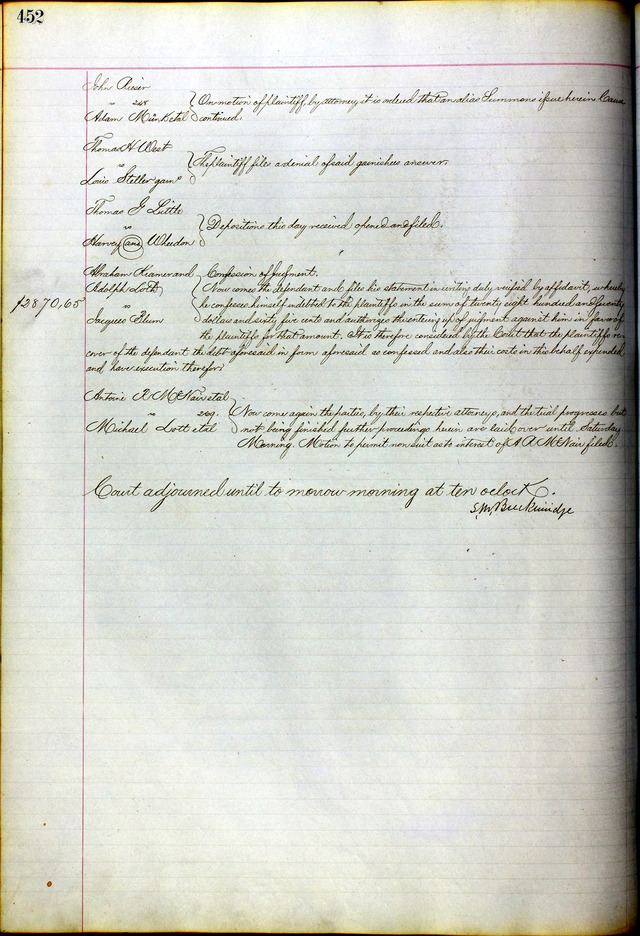 452
John Rieser
vs 248
Adam Mink et al
On motion of plaintiff, by attorney, it is ordered that an alias Summons issue herein. Cause
continued.
Thomas H West
vs
Louis Steller garn^e
The plaintiff files a denial of said garnishees answer.
Thomas G Little
vs
Harvey and Wheedon
Depositions this day received opened and filed.
Abraham Kramer and
Adolph Loth
vs
Jacques Blum
$2870,65
Confession of judgment.
Now comes the defendant and files his statement in writing duly verified by affidavit, whereby
he confesses himself indebted to the plaintiffs in the sum of twenty eight hundred and seventy
dollars and sixty five cents and authorizes the entering up of judgment against him in favor of
the plaintiffs for that amount. It is therefore considered by the Court that the plaintiffs re-
cover of the defendant the debt aforesaid in form aforesaid so confessed and also their costs in this behalf expended
and have execution therefor.
Antoine R McNair et al
vs
Michael Lott et al
Now come again the parties, by their respective attorneys, and the trial progresses but
not being finished further proceedings herein are laid over until Saturday
Morning. Motion to permit nonsuit as to interest of A R McNair filed.
Court adjourned until to morrow morning at ten oclock.
S.M. Breckinridge